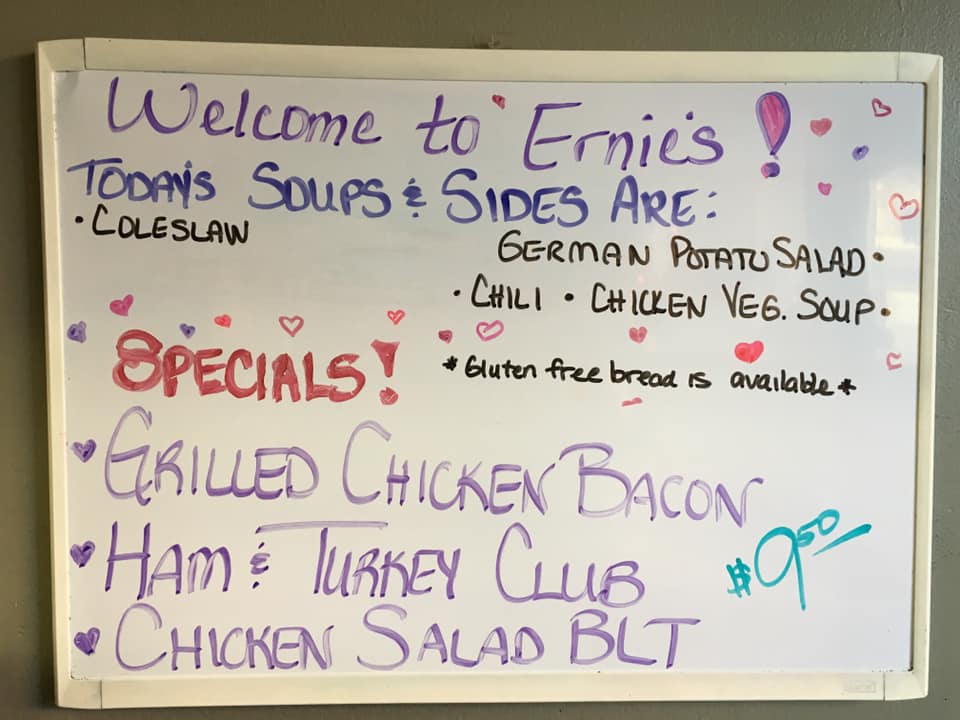 Welcome to Ernie's!
TODAY'S SOUPS & SIDES ARE:
• COLESLAW
GERMAN POTATO SALAD •
• CHILI • CHICKEN VEG. SOUP •
SPECIALS!
* Gluten free bread is available *
GRILLED CHICKEN BACON
HAM & TURKEY CLUB
$9.50
CHICKEN SALAD BLT